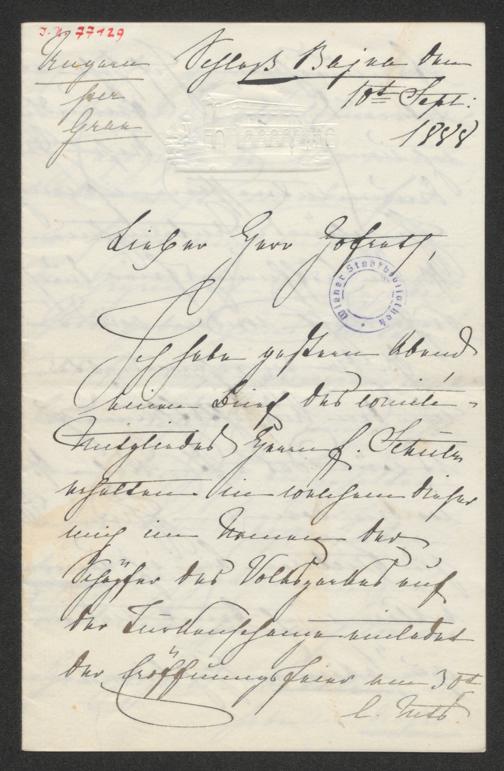 J.N. 77129
Ungarn
per
Gran
Schloß Bajna den
10t Sept:
1888
Lieber Herr Hofrath,
Wiener Stadtbibliothek
Ich habe gestern Abend
einen Brief des Comite-
Mitgliedes Herrn F. Schüler
erhalten in welchem dieser
mich im Namen der
Schöpfer des Volksparkes auf
der Türkenschanze einladet
der Eröffnungsfeier am 30t